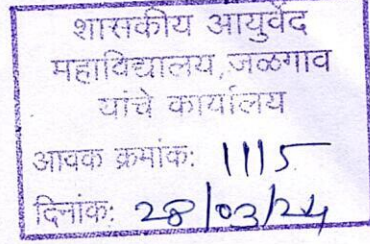 शासकीय आयुर्वेद
महाविद्यालय,जळगाव
यांचे कार्यालय
आवक क्रमांक: 1115
दिनांक: 28/03/24